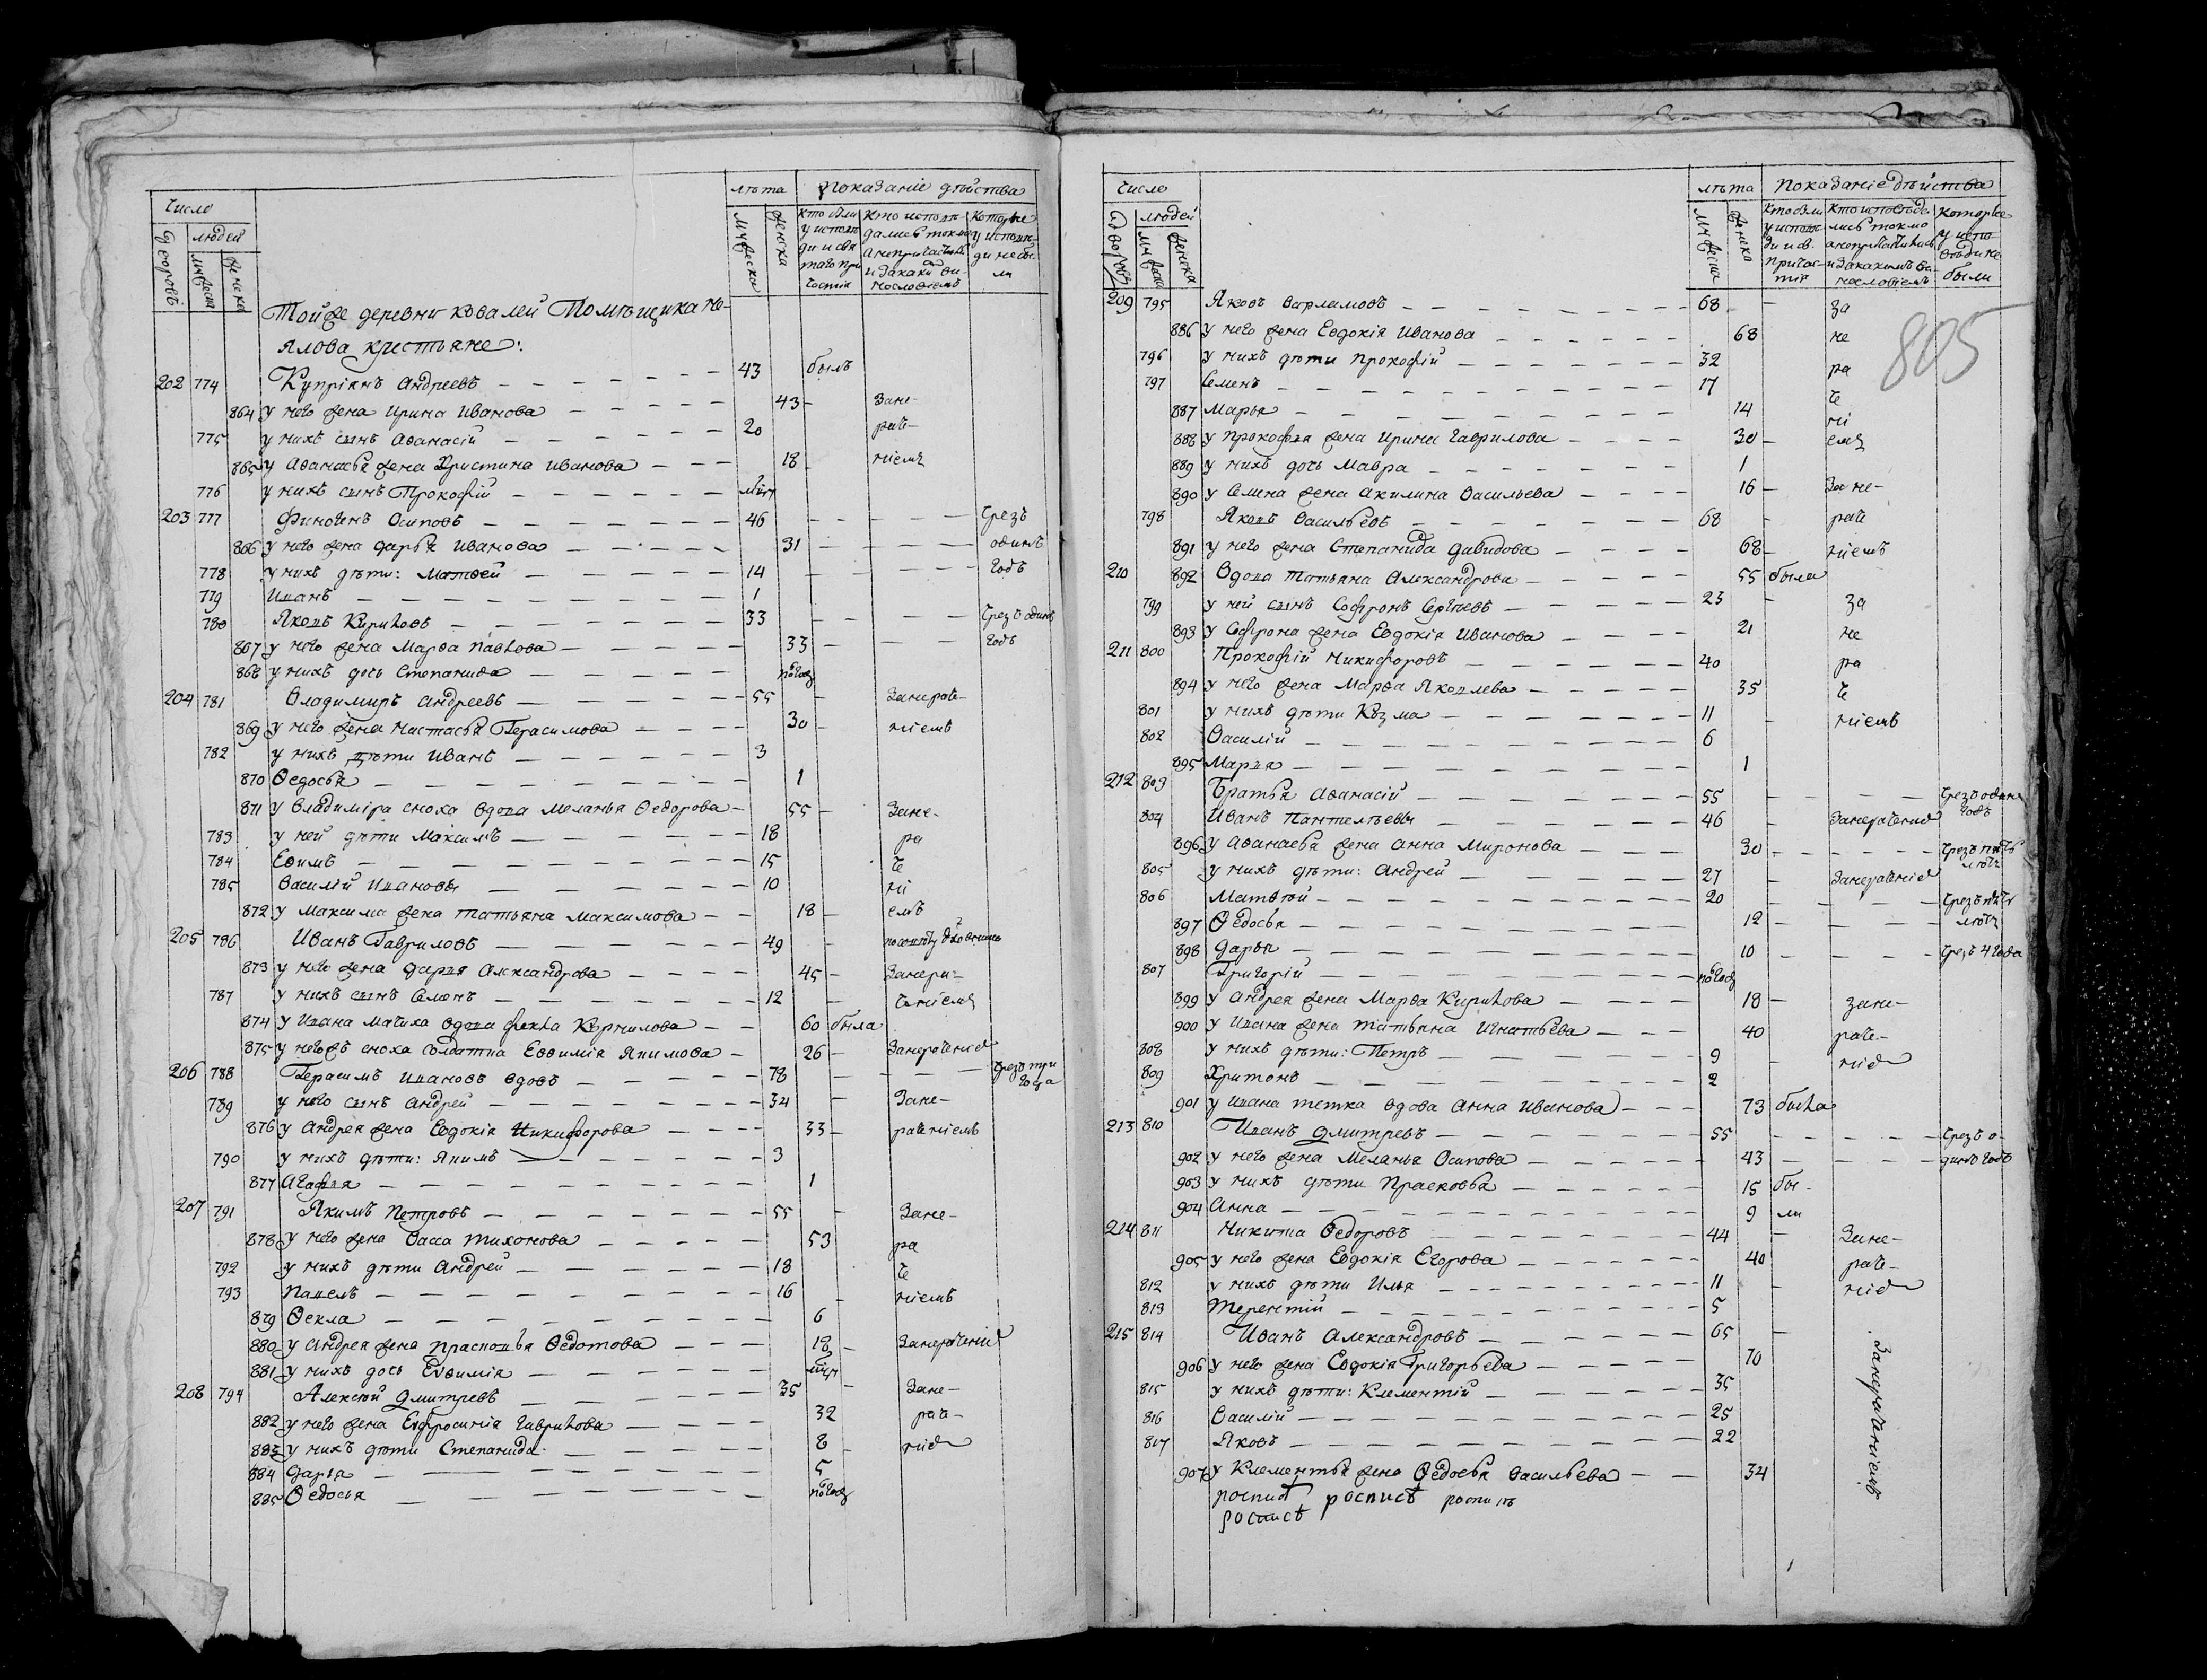 Число
лѣта показаніе дѣйства
дворовъ
людей
мужеска
женска
мужеска
женска
кто были у исповѣди и свя таго при частія
кто исповѣ дались токмо а непричастились и за каки ви нословіемъ
Которые у исповѣ ди не бы ли
Тойже деревни ковалей Помѣщика Не-
ялова крестьяне:
202 774 Купріянъ Андреевъ 43 былъ
864 у него жена Ирина Иванова 43 Зане-
775 у нихъ сынъ Аѳанасій 20 раче-
865 у Аѳанасья жена Христина Иванова 18 ніемъ
776 у нихъ сынъ Прокофій
203 777 Финогенъ Осиповъ 46 чрезъ
866 у него жена Дарья Иванова 31 одинъ
778 у нихъ дѣти: Матѳей 14 годъ
779 Иванъ 1
780 Яковъ Кириловъ 33 чрезъ одинъ
867 у него жена Марѳа Павлова 33 годъ
868 у нихъ дочь Степанида полгода
204 781 Владимиръ Андреевъ 55 Занераче-
869 у него жена Настасья Герасимова 30 ніемъ
782 у нихъ дѣти Иванъ 3
870 Ѳедосья 1
871 у Владиміра сноха вдова Меланья Ѳедорова 55 Зане-
783 у ней дѣти Максимъ 18 ра
784 Еѳимъ 15 че
785 Василій Ивановы 10 ні
872 у Максима жена Татьяна Максимова 18 емъ
205 786 Иванъ Гавриловъ 49 по совѣту духовника
873 у него жена Дарья Александрова 45 Занера-
787 у нихъ сынъ Семенъ 12 ченіемъ
874 у Ивана мачиха вдова Фекла Корнилова 60 была
875 у негожъ сноха солдатка Евѳимія Якимова 26 Занераченіе
206 788 Герасимъ Ивановъ вдовъ 78 чрезъ три года
789 у него сынъ Андрей 34 Зане-
876 у Андрея жена Евдокія Никифорова 33 раченіемъ
790 у нихъ дѣти: Якимъ 3
877 Агафья 1
207 791 Якимъ Петровъ 55 Зане-
878 у него жена Васса Тихонова 53 ра
792 у нихъ дѣти Андрей 18 че
793 Павелъ 16 ніемъ
879 Ѳекла 6
880 у Андрея жена Прасковья Ѳедотова 18 Занераченіе
881 у нихъ дочь Евѳимія
208 794 Алексѣй Дмитревъ 35 Зане-
882 у него жена Евфросинія Гаврилова 32 раче-
883 у нихъ дѣти Степанида 8 ніе
884 Дарья 5
885 Ѳедосья полгода
Число
лѣта Показаніе дѣйства
дворовъ
людей
мужеска
женска
мужеска
женска
Кто были у исповѣ ди и св. причас- тія
кто исповѣда лись токмо а непричастились и за какимъ ви- нословіемъ
которые у испо вѣди не были
805
209 795 Яковъ Варламовъ 68 за
886 у него жена Евдокія Иванова 68 не
796 у нихъ дѣти Прокофій 32 ра
797 Семенъ 17 че
887 Марья 14 ні
888 у Прокофья жена Ирина Гаврилова 30 емъ
889 у нихъ дочь Мавра 1
890 у Семена жена Акилина Васильева 16 За не-
798 Яковъ Васильевъ 68 раче
891 у него жена Степанида Давидова 68 ніемъ
210 892 Вдова Татьяна Александрова 55 была
799 у ней сынъ Софронъ Сергѣевъ 23 за
893 у Софрона жена Евдокія Иванова 21 не
211 800 Прокофій Никифоровъ 40 ра
894 у него жена Марѳа Яковлева 35 че
801 у нихъ дѣти Кузма 11 ніемъ
802 Василій 6
895 Марья 1
212 803 Братья Аѳанасій 55 чрезъ одинъ
804 Иванъ Пантелѣевы 46 Занераченіе годъ
896 у Аѳанасья жена Анна Миронова 30 чрезъ пять лѣтъ
805 у нихъ дѣти: Андрей 27 Занераченіе
806 Матѳѣй 20 чрезъ пять
897 Ѳедосья 12 лѣтъ
898 Дарья 10 чрезъ 4 года
807 Григорій полгода
899 у Андрея жена Марѳа Кирилова 18 зане-
900 у Ивана жена Татьяна Игнатьева 40 раче-
808 у нихъ дѣти: Петръ 9 ніе
809 Хритонъ 2
901 у Ивана тетка вдова Анна Иванова 73 была
213 810 Иванъ Дмитревъ 55 чрезъ о-
902 у него жена Меланья Осипова 43 динъ годъ
903 у нихъ дѣти Прасковья 15 бы-
904 Анна 9 ли
214 811 Никита Ѳедоровъ 44 Зане-
905 у него жена Евдокія Егорова 40 раче-
812 у нихъ дѣти Илья 11 ніе
813 Терентій 5
215 814 Иванъ Александровъ 65 Занераченіемъ
906 у него жена Евдокія Григорьева 70
815 у нихъ дѣти: Клементій 35
816 Василій 25
817 Яковъ 22
907 у Клементья жена Ѳедосья Васильева 34
роспись роспись роспись
роспись